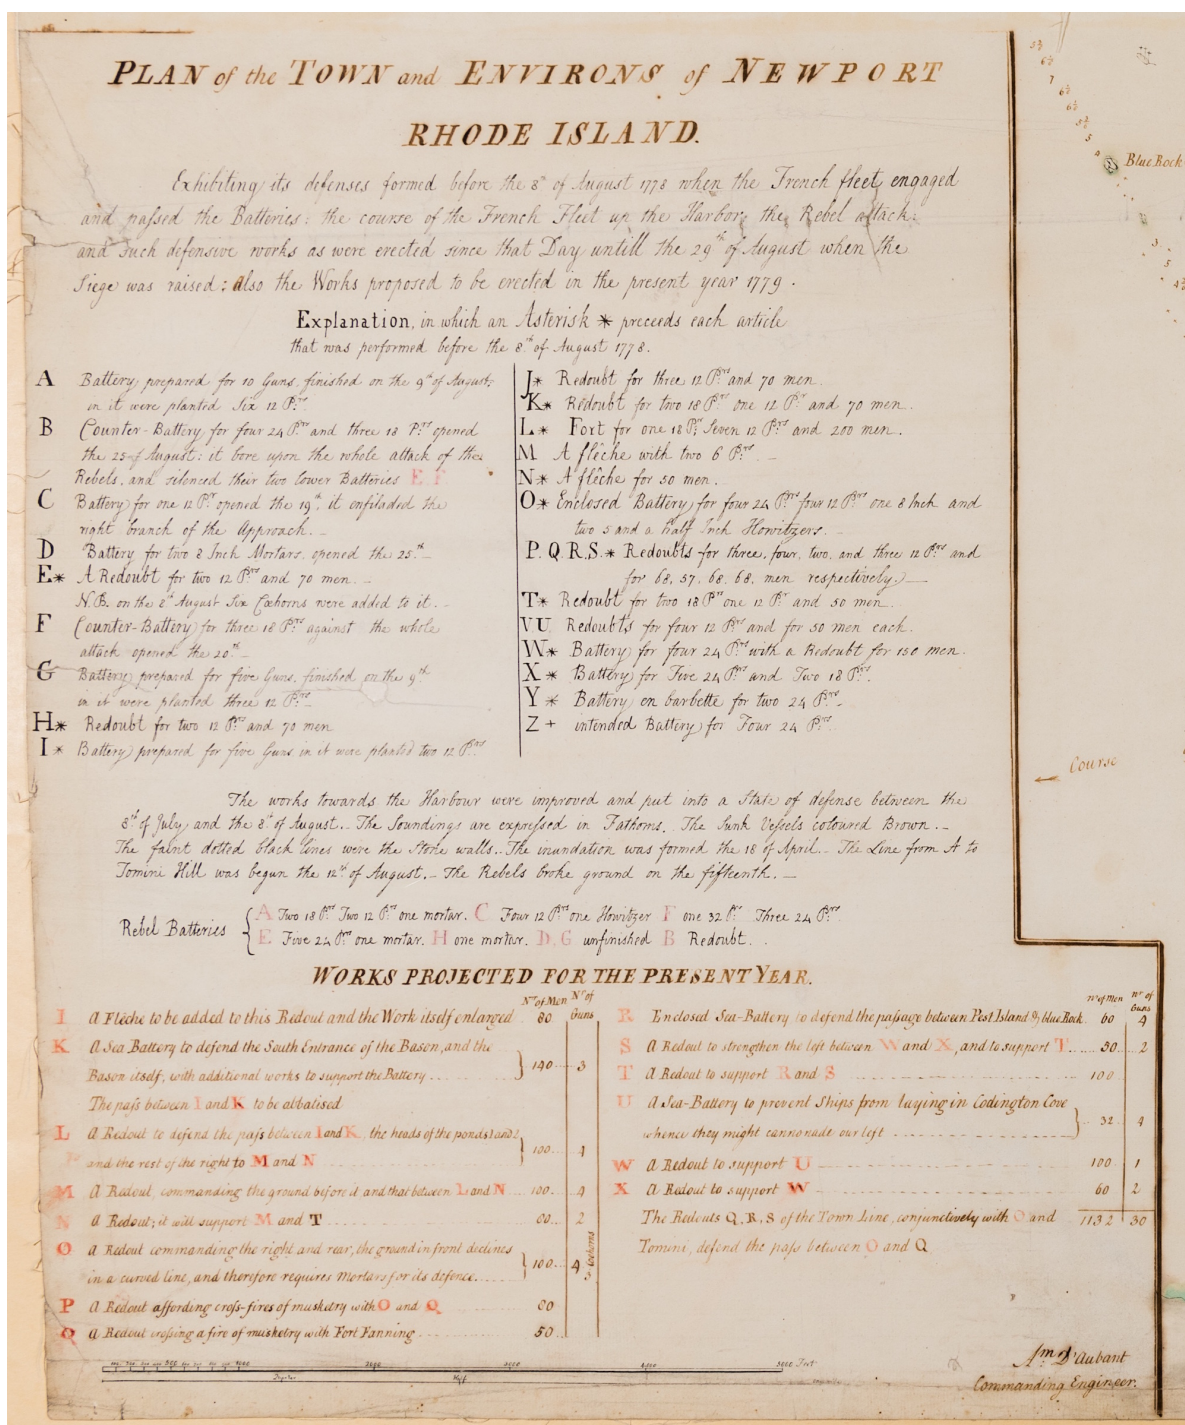 PLAN of the TOWN and ENVIRONS of NEWPORT
RHODE ISLAND.
Exhibiting its defenses formed before the 8th of August 1778 when the French fleet engaged
and passed the Batteries: the course of the French Fleet up the Harbor; the Rebel attack;
and such defensive works as were erected since that Day untill the 29th of August when the
Siege was raised; also the Works proposed to be erected in the present year 1779.
Explanation, in which an Asterisk * preceeds each article
that was performed before the 8th of August 1778.
A Battery prepared for 10 Guns, finished on the 9th of August;
in it were planted Six 12 Prs.
B Counter-Battery for four 24 Prs and three 18 Prs opened
the 25 of August: it bore upon the whole attack of the
Rebels, and silenced their two lower Batteries E. F
C Battery for one 12 Pr opened the 19th, it enfiladed the
right branch of the Approach. -
D Battery for two 8 Inch Mortars, opened the 25th -
E* A Redoubt for two 12 Prs and 70 men. -
N.B. on the 8th August Six Coehorns were added to it. -
F Counter-Battery for three 18 Prs against the whole
attack opened the 20th -
G Battery prepared for five Guns, finished on the 9th
in it were planted three 12 Prs -
H* Redoubt for two 12 Prs and 70 men
I* Battery prepared for five Guns in it were planted two 12 Prs
J* Redoubt for three 12 Prs and 70 men.
K* Redoubt for two 18 Prs one 12 Pr and 70 men.
L* Fort for one 18 Pr Seven 12 Prs and 200 men.
M A flêche with two 6 Prs. -
N* A flêche for 50 men.
O* Enclosed Battery for four 24 Prs four 12 Prs one 8 Inch and
two 5 and a half Inch Howitzers.
P. Q. R. S.* Redoubts for three, four, two, and three 12 Prs and
for 68, 57, 68, 68, men respectively. -
T* Redoubt for two 18 Prs one 12 Pr and 50 men.
V U. Redoubts for four 12 Prs and for 50 men each.
W* Battery for four 24 Prs with a Redoubt for 150 men.
X* Battery for Five 24 Prs and Two 18 Prs.
Y* Battery en barbette for two 24 Prs -
Z+ intended Battery for Four 24 Prs.
The works towards the Harbour were improved and put into a State of defense between the
8th of July and the 8th of August. - The Soundings are expressed in Fathoms. The Sunk Vessels coloured Brown. -
The faint dotted black lines were the Stone walls. - The inundation was formed the 18 of April. - The Line from A to
Tomini Hill was begun the 12th of August. - The Rebels broke ground on the fifteenth. -
Rebel Batteries { A Two 18 Prs Two 12 Prs one mortar. C Four 12 Prs one Howitzer F one 32 Pr Three 24 Prs
E Five 24 Prs one mortar. H one mortar. D, G unfinished B Redoubt.
WORKS PROJECTED FOR THE PRESENT YEAR.
No. of Men No. of Guns
I A Fleche to be added to this Redout and the Work itself enlarged 80
K A Sea Battery to defend the South Entrance of the Bason, and the
Bason itself, with additional works to support the Battery 140 3
The pass between I and K to be abbatised
L A Redout to defend the pass between I and K, the heads of the ponds 1 and 2
and the rest of the right to M and N 100 4
M A Redout, commanding the ground before it, and that between L and N 100 4
N A Redout; it will support M and T 80 2
O A Redout commanding the right and rear, the ground in front declines
in a curved line, and therefore requires Mortars for its defence. 100 4
Coehorns
P A Redout affording cross-fires of musketry with O and Q 80
Q A Redout crossing a fire of musketry with Fort Fanning 50
no. of Men no. of Guns
R Enclosed Sea-Battery to defend the passage between Pest Island & blue Rock. 60 4
S A Redout to strengthen the left between W and X, and to support T 30 2
T A Redout to support R and S 100
U A Sea-Battery to prevent Ships from laying in Codington Cove
whence they might cannonade our left 32 4
W A Redout to support U 100 1
X A Redout to support W 60 2
The Redouts Q, R, S of the Town Line, conjunctively with O and 1132 30
Tomini, defend the pass between O and Q
Am D'Aubant
Commanding Engineer.
Blue Rock
Course
1000 2000 3000 4000 5000 Feet